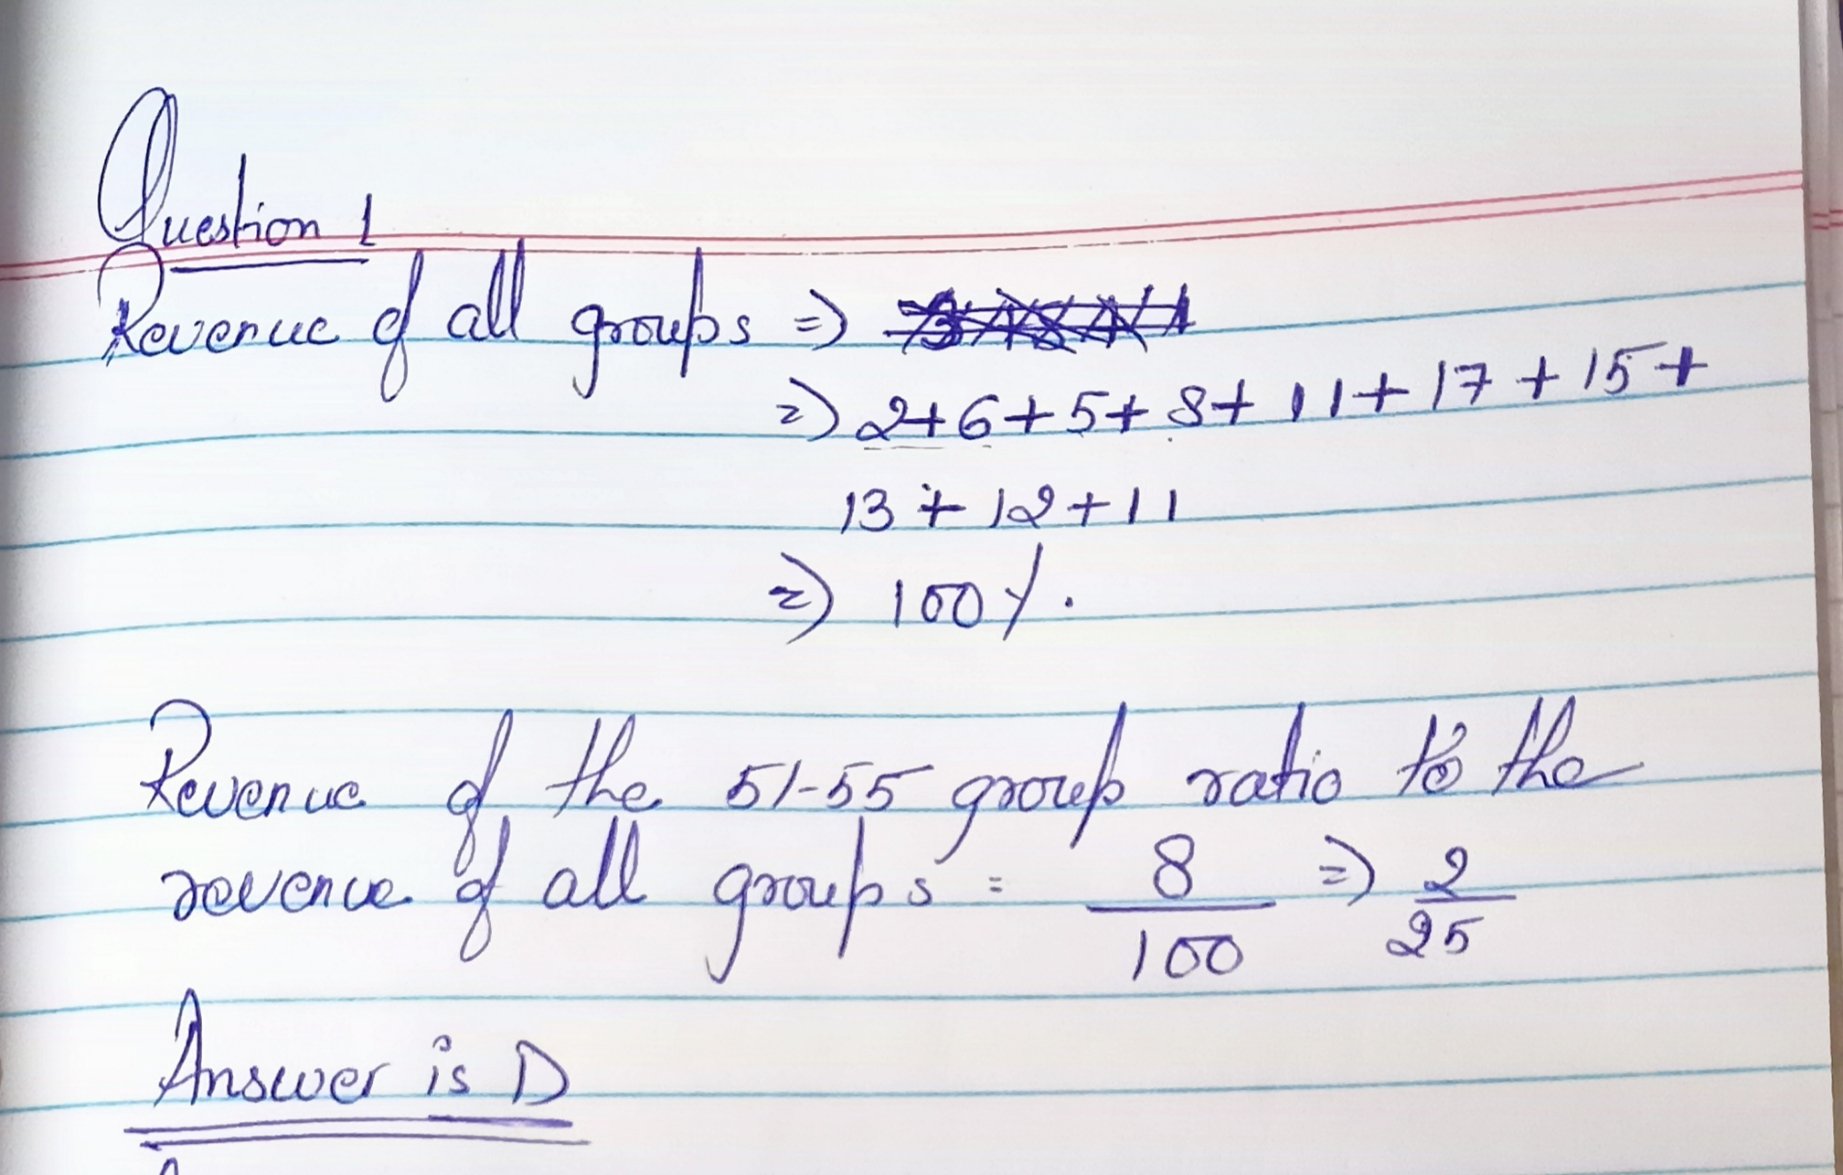 Question 1
Revenue of all groups =>
=> 2+6+5+8+11+17+15+
13+12+11
=> 100%.
Revenue of the 51-55 group ratio to the
revenue of all groups = 8/100 => 2/25
Answer is D